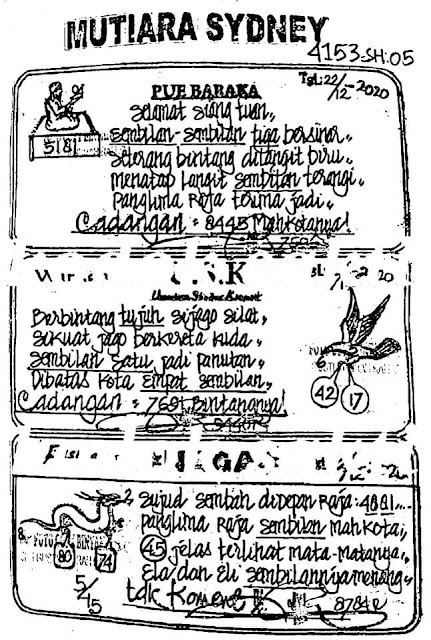 MUTIARA SYDNEY
4153-SH:05
PUE BARAKA
Tgl: 22/12-2020
518
Selamat siang tuan,,
sembilan-sembilan tiga bersinar,,
seterang bintang dilangit biru,,
menatap langit sembilan terangi,,
Panglima Raja terima jadi,,
Cadangan = 8445 Mahkotanya!
20
Berbintang tujuh sijago silat,,
sikuat jago berkereta kuda,,
sembilan satu jadi panutan,,
Dibatas kota empat sembilan,,
42 17
Cadangan = 7691 Bintangnya!
sujud sembah didepan Raja: 4881...
Panglima Raja sembilan mahkota,,
45 jelas terlihat mata-matanya,,
Ela dan Eli sembilannya menang,,
80 74
5/45
tdk Komen